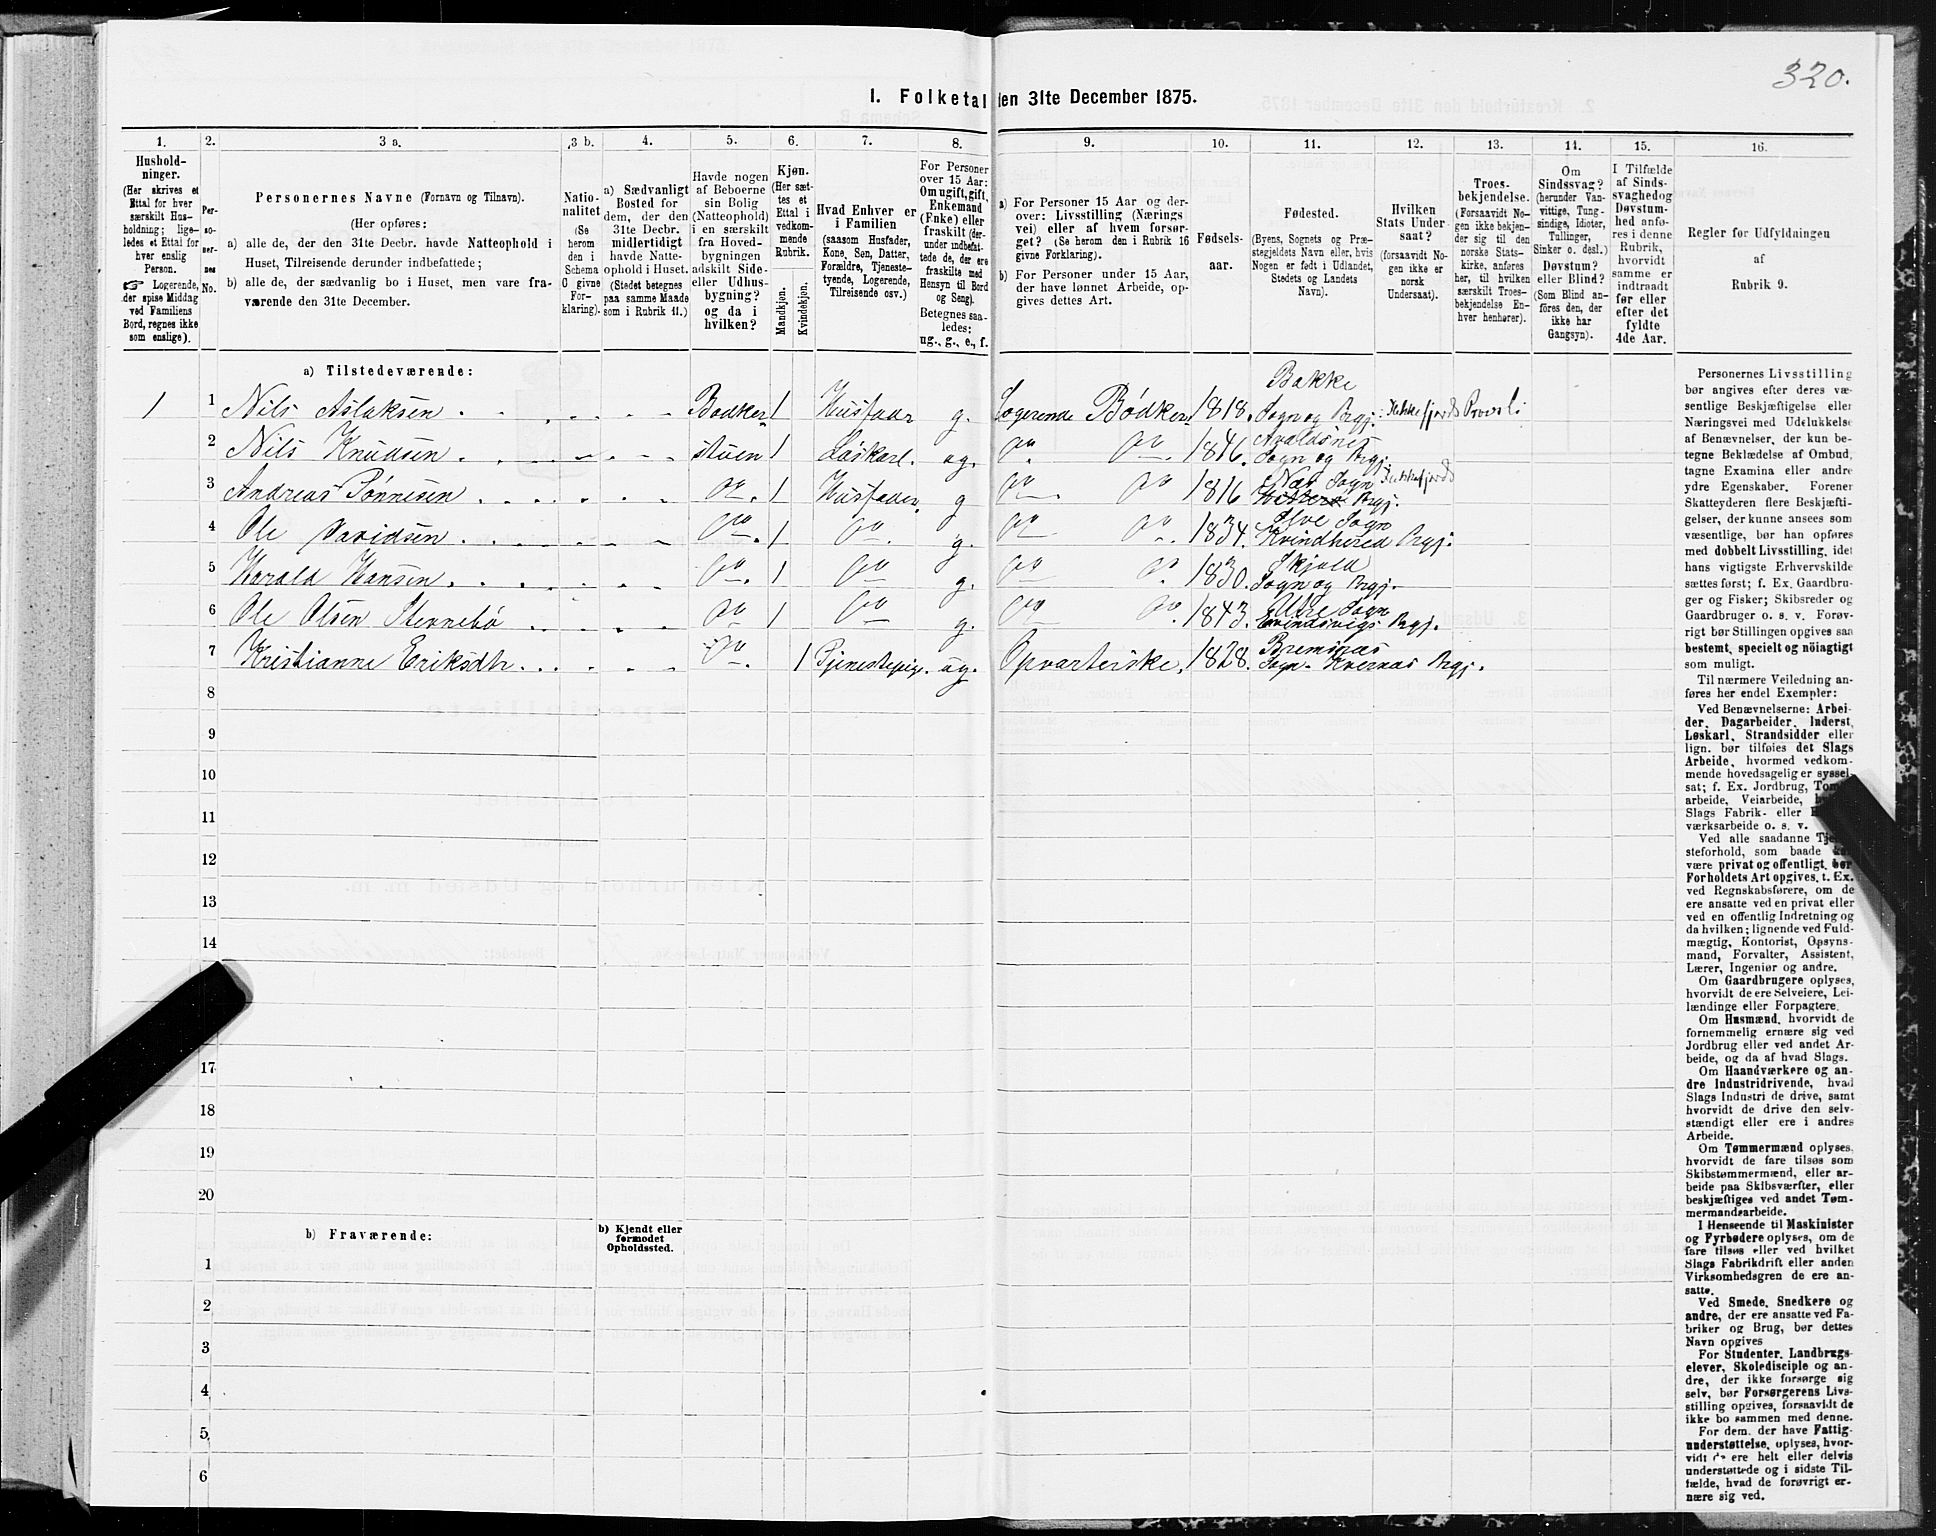 320.
1. Folketal den 31te December 1875.
1.
Hushold-
ninger.
(Her skrives et
Ettal for hver
særskilt Hus-
holdning; lige-
ledes et Ettal for
hver enslig
Person.
☞ Logerende,
der spise Middag
ved Familiens
Bord, regnes ikke
som enslige).
2.
Per-
so-
ner-
nes
No.
3 a.
Personernes Navne (Fornavn og Tilnavn).
(Her opføres:
a) alle de, der den 31te Decbr. havde Natteophold i
Huset, Tilreisende derunder indbefattede;
b) alle de, der sædvanlig bo i Huset, men vare fra-
værende den 31te December.
3 b.
Natio-
nalitet
(Se
herom
den i
Schema
C givne
For-
klaring).
4.
a) Sædvanligt
Bosted for
dem, der den
31te Decbr.
midlertidigt
havde Natte-
ophold i Huset.
(Stedet betegnes
paa samme Maade
som i Rubrik 11.)
5.
Havde nogen
af Beboerne
sin Bolig
(Natteophold)
i en særskilt
fra Hoved-
bygningen
adskilt Side-
eller Udhus-
bygning?
og da i
hvilken?
6.
Kjøn.
(Her sæt-
tes et
Ettal i
vedkom-
mende
Rubrik.
Mandkjøn.
Kvindekjøn.
7.
Hvad Enhver er
i Familien
(saasom Husfader,
Kone, Søn, Datter,
Forældre, Tjeneste-
tyende, Logerende,
Tilreisende osv.)
8.
For Personer
over 15 Aar:
Om ugift, gift,
Enkemand
(Enke) eller
fraskilt (der-
under indbefat-
tede de, der ere
fraskilte med
Hensyn til Bord
og Seng).
Betegnes saa-
ledes:
ug., g., e., f.
9.
a) For Personer 15 Aar og der-
over: Livsstilling (Nærings
vei) eller af hvem forsør-
get? (Se herom den i Rubrik 16
givne Forklaring).
b) For Personer under 15 Aar,
der have lønnet Arbeide, op-
gives dettes Art.
10.
Fødsels-
aar.
11.
Fødested.
(Byens, Sognets og Præ-
stegjeldets Navn eller, hvis
Nogen er født i Udlandet,
Stedets og Landets
Navn).
12.
Hvilken
Stats Under
saat?
(forsaavidt No-
gen ikke er
norsk
Undersaat).
13.
Troes-
bekjendelse.
(Forsaavidt No-
gen ikke bekjen-
der sig til den
norske Stats-
kirke, anføres
her, til hvilken
særskilt Troes-
bekjendelse En-
hver henhører).
14.
Om
Sindssvag?
(herunder Van-
vittige, Tung-
sindige, Idioter,
Tullinger,
Sinker o. desl.)
Døvstum?
eller Blind?
(Som Blind an-
føres den, der
ikke har
Gangsyn).
15.
I Tilfælde
af Sinds-
svaghed og
Døvstum-
hed anfø-
res i denne
Rubrik,
hvorvidt
samme er
indtraadt
før eller
efter det
fyldte
4de Aar.
16.
Regler for Udfyldningen
af
Rubrik 9.
a) Tilstedeværende:
1 1 Nils Aslaksen Bødker- 1 Husfader g. Logerende Bødker 1818. Bakke Sogn og Prgj. Flekkefjords Provsti
2 Nils Knudsen stuen 1 Løskarl. ug. do do 1846. Avaldsnes Sogn og Prgj.
3 Andreas Tønnesen do 1 Husfader g do do 1816 Næs Sogn Flekkefjords Prgj.
4 Ole Davidsen do 1 do g. do do 1834. Ølve Sogn Kvindhered Prgj.
5 Harald Hansen do 1 do g. do do 1830. Skjold Sogn og Prgj.
6 Ole Olsen do 1 do g. do do 1843. Sogn Evindsvigs Prgj.
7 Kristianne Eriksdtr do 1 Tjenestepige. ug. Opvarterske. 1828. Bremsnæs Sogn Kvernæs Prgj.
8
9
10
11
12
13
14
17
18
19
20
b) Fraværende:
b) Kjendt eller
formodet
Opholdssted.
1
2
3
4
5
6
Personernes Livsstilling
bør angives efter deres væ-
sentlige Beskjæftigelse eller
Næringsvei med Udelukkelse
af Benævnelser, der kun be-
tegne Beklædelse af Ombud,
tagne Examina eller andre
ydre Egenskaber. Forener
Skatteyderen flere Beskjæfti-
gelser, der kunne ansees som
væsentlige, bør han opføres
med dobbelt Livsstilling, idet
hans vigtigste Erhvervskilde
sættes først; f. Ex. Gaardbru-
ger og Fisker; Skibsreder og
Gaardbruger o. s. v. Forøv-
rigt bør Stillingen opgives saa
bestemt, specielt og nöiagtigt
som muligt.
Til nærmere Veiledning an-
føres her endel Exempler:
Ved Benævnelserne: Arbei-
der, Dagarbeider, Inderst,
Løskarl, Strandsidder eller
lign. bør tilføies det Slags
Arbeide, hvormed vedkom-
mende hovedsagelig er syssel-
sat; f. Ex. Jordbrug,
arbeide, Veiarbeide,
Slags Fabrik- eller
værksarbeide o. s. v.
Ved alle saadanne
steforhold, som baade
være privat og offentligt, bør
Forholdets Art opgives, t. Ex.
ved Regnskabsførere, om de
ere ansatte ved en privat eller
ved en offentlig Indretning og
da hvilken; lignende ved Fuld-
mægtig, Kontorist, Opsyns-
mand, Forvalter, Assistent,
Lærer, Ingeniør og andre.
Om Gaardbrugere oplyses,
hvorvidt de ere Selveiere, Lei-
lændinge eller Forpagtere.
Om Husmænd, hvorvidt de
fornemmelig ernære sig ved
Jordbrug eller ved andet Ar-
beide, og da af hvad Slags.
Om Haandværkere og an-
dre Industridrivende, hvad
Slags Industri de drive, samt
hvorvidt de drive den selv-
stændigt eller ere i andres
Arbeide.
Om Tømmermænd oplyses,
hvorvidt de fare tilsøs som
Skibstømmermænd, eller ar-
beide paa Skibsværfter, eller
beskjæftiges ved andet Tøm-
mermandsarbeide.
I Henseende til Maskinister
og Fyrbødere oplyses, om de
fare tilsøs eller ved hvilket
Slags Fabrikdrift eller anden
Virksomhedsgren de ere an-
satte.
Ved Smede, Snedkere og
andre, der ere ansatte ved Fa-
briker og Brug, bør dettes
Navn opgives
For Studenter, Landbrugs-
elever, Skoledisciple og an-
dre, der ikke forsørge sig
selv, bør Forsørgerens Livs-
stilling opgives, forsaavidt de
ikke bo sammen med denne.
For dem, der have Fattig-
understøttelse, oplyses, hvor-
vidt de ere helt eller delvis
understøttede og i sidste Til-
fælde, hvad de forøvrigt er-
nære sig ved.